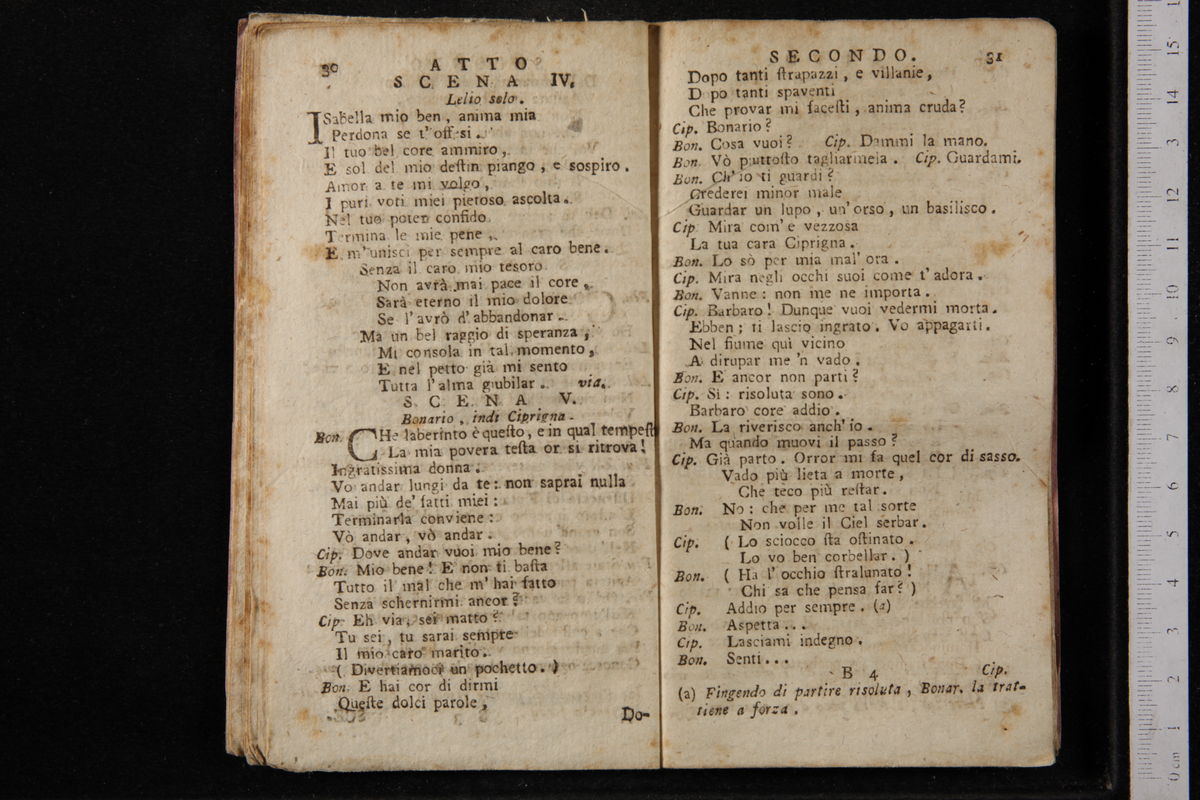 30
ATTO
SCENA IV.
Lelio solo.
ISabella mio ben, anima mia
Perdona se t'offesi.
Il tuo bel core ammiro,
E sol del mio deſtin piango, e sospiro.
Amor a te mi volgo,
I puri voti miei pietoso ascolta.
Nel tuo poter confido
Termina le mie pene,
E m'unisci per sempre al caro bene.
Senza il caro mio tesoro
Non avrà mai pace il core,
Sarà eterno il mio dolore
Se l'avrò d'abbandonar.
Ma un bel raggio di speranza,
Mi consola in tal momento,
E nel petto già mi sento
Tutta l'alma giubilar. via.
SCENA V.
Bonario, indi Ciprigna.
Bon. CHe laberinto è queſto, e in qual tempeſt
La mia povera teſta or si ritrova!
Ingratissima donna.
Vo andar lungi da te: non saprai nulla
Mai più de' fatti miei:
Terminarla conviene:
Vò andar, vò andar.
Cip. Dove andar vuoi mio bene?
Bon. Mio bene! E non ti baſta
Tutto il mal che m'hai fatto
Senza schernirmi ancor?
Cip. Eh via, sei matto?
Tu sei, tu sarai sempre
Il mio caro marito.
( Divertiamoci un pochetto. )
Bon. E hai cor di dirmi
Queſte dolci parole,
Do-
SECONDO. 31
Dopo tanti ſtrapazzi, e villanie,
D po tanti spaventi
Che provar mi faceſti, anima cruda?
Cip. Bonario?
Bon. Cosa vuoi? Cip. Dammi la mano.
Bon. Vò piuttoſto tagliarmela. Cip. Guardami.
Bon. Ch'io ti guardi?
Crederei minor male
Guardar un lupo, un'orso, un basilisco.
Cip. Mira com'e vezzosa
La tua cara Ciprigna.
Bon. Lo sò per mia mal'ora.
Cip. Mira negli occhi suoi come t'adora.
Bon. Vanne: non me ne importa.
Cip. Barbaro! Dunque vuoi vedermi morta.
Ebben; ti lascio ingrato. Vo appagarti.
Nel fiume quì vicino
A dirupar me 'n vado.
Bon. E ancor non parti?
Cip. Si: risoluta sono.
Barbaro core addio.
Bon. La riverisco anch'io.
Ma quando muovi il passo?
Cip. Già parto. Orror mi fa quel cor di sasso.
Vado più lieta a morte,
Che teco più reſtar.
Bon. No: che per me tal sorte
Non volle il Ciel serbar.
Cip. ( Lo sciocco ſta oſtinato.
Lo vo ben corbellar. )
Bon. ( Ha l'occhio ſtralunato!
Chi sa che pensa far? )
Cip. Addio per sempre. (a)
Bon. Aspetta...
Cip. Lasciami indegno.
Bon. Senti...
B 4
Cip.
(a) Fingendo di partire risoluta, Bonar. la trat-
tiene a forza.
0 cm 1 2 3 4 5 6 7 8 9 10 11 12 13 14 15